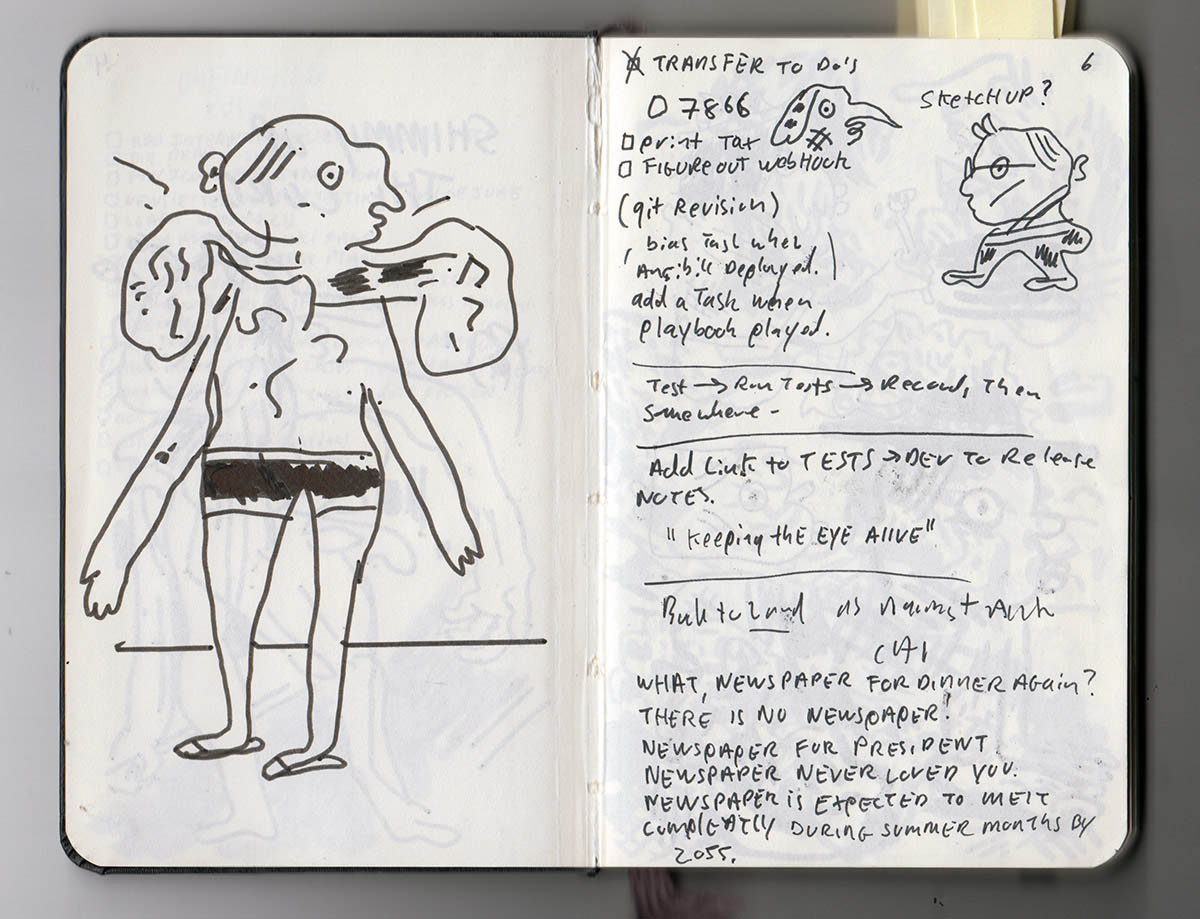 TRANSFER TO DO'S
6
7866
SKETCHUP?
PRINT TAX
FIGURE OUT WEBHOOK
(git Revision)
Task when
Ansible Deployed.
add a Task when
playbook played.
Test → Run Tests → Record, Then
Somewhere -
Add Link to TESTS → DEV To Release
NOTES.
"Keeping the EYE ALIVE"
Back to Land as
WHAT, NEWSPAPER FOR DINNER AGAIN?
THERE IS NO NEWSPAPER!
NEWSPAPER FOR PRESIDENT.
NEWSPAPER NEVER LOVED YOU.
NEWSPAPER IS EXPECTED TO MELT
COMPLEATLY DURING SUMMER MONTHS BY
2055.